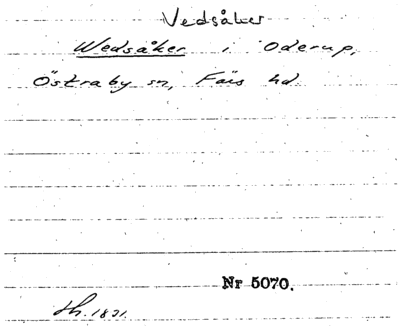 Vedsåker
Wedsåker i Oderup,
Östraby sn, Färs hd.
Nr 5070.
Lh. 1821.